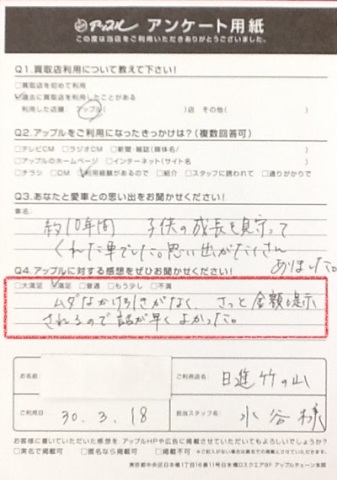 アップル アンケート用紙
この度は当店をご利用いただきありがとうございました。
Q1.買取店利用について教えて下さい!
□買取店を初めて利用
□過去に買取店を利用したことがある
利用した店舗: アップル( )店 その他( )
Q2.アップルをご利用になったきっかけは?(複数回答可)
□テレビCM □ラジオCM □新聞・雑誌(媒体名/ )
□アップルのホームページ □インターネット(サイト名 )
□チラシ □DM □利用経験があるので □紹介 □スタッフに誘われて □通りがかりで
Q3.あなたと愛車との思い出をお聞かせください!
車名:
約10年間 子供の成長を見守って
くれた車でした。思い出がたくさん
ありました。
Q4.アップルに対する感想をぜひお聞かせください!
□大満足 □満足 □普通 □もう少し □不満
ムダなかけひきがなく、さっと金額を提示
されるので話が早くよかった。
お名前
ご利用店名: 日進竹の山
ご利用日 30.3.18
担当スタッフ名: 水谷様
お客様に書いていただいた感想を アップルHPや広告に掲載させていただいてもよろしいでしょうか?
□実名で掲載可 □匿名なら掲載可 □掲載不可
東京都中央区日本橋1丁目16番11号日本橋DスクエアBF アップルチェーン本部